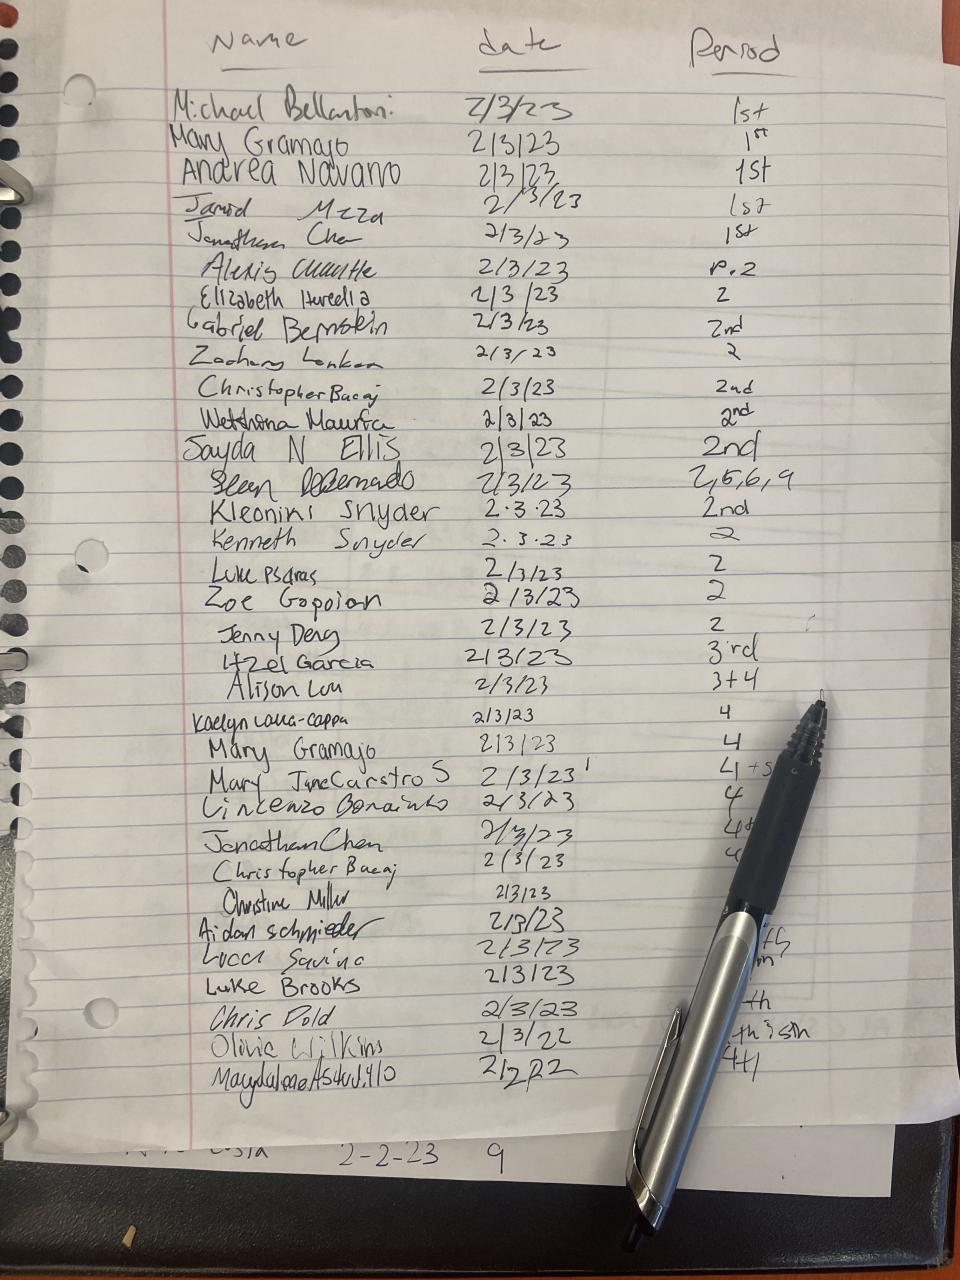 Name date Period
Michael Bellantoni 2/3/23 1st
Mary Gramajo 2/3/23 1st
Andrea Navarro 2/3/23 1st
Jarrod Meza 2/3/23 1st
Jonathan Chen 2/3/23 1st
Alexis 2/3/23 P.2
Elizabeth Heredia 2/3/23 2
Gabriel Bernstein 2/3/23 2nd
Zachary 2/3/23 2
Christopher Bacaj 2/3/23 2nd
2/3/23 2nd
Sayda N Ellis 2/3/23 2nd
Sean DeBernardo 2/3/23 2,5,6,9
Kleonini Snyder 2.3.23 2nd
Kenneth Snyder 2.3.23 2
Luke Psaras 2/3/23 2
Zoe Gopoian 2/3/23 2
Jenny Deng 2/3/23 2
Itzel Garcia 2/3/23 3rd
Alison Lou 2/3/23 3+4
Kaelyn 2/3/23 4
Mary Gramajo 2/3/23 4
Mary Jane Carstro S 2/3/23 4+5
Vincenzo 2/3/23 4
Jonathan Chen 2/3/23 4+
Christopher Bacaj 2/3/23 4
Christine Miller 2/3/23
Aidan schmieder 2/3/23
Lucca Savino 2/3/23 th
Luke Brooks 2/3/23
Chris Dold 2/3/23 th
Olivia Wilkins 2/3/22 th 5th
2-2-23 9